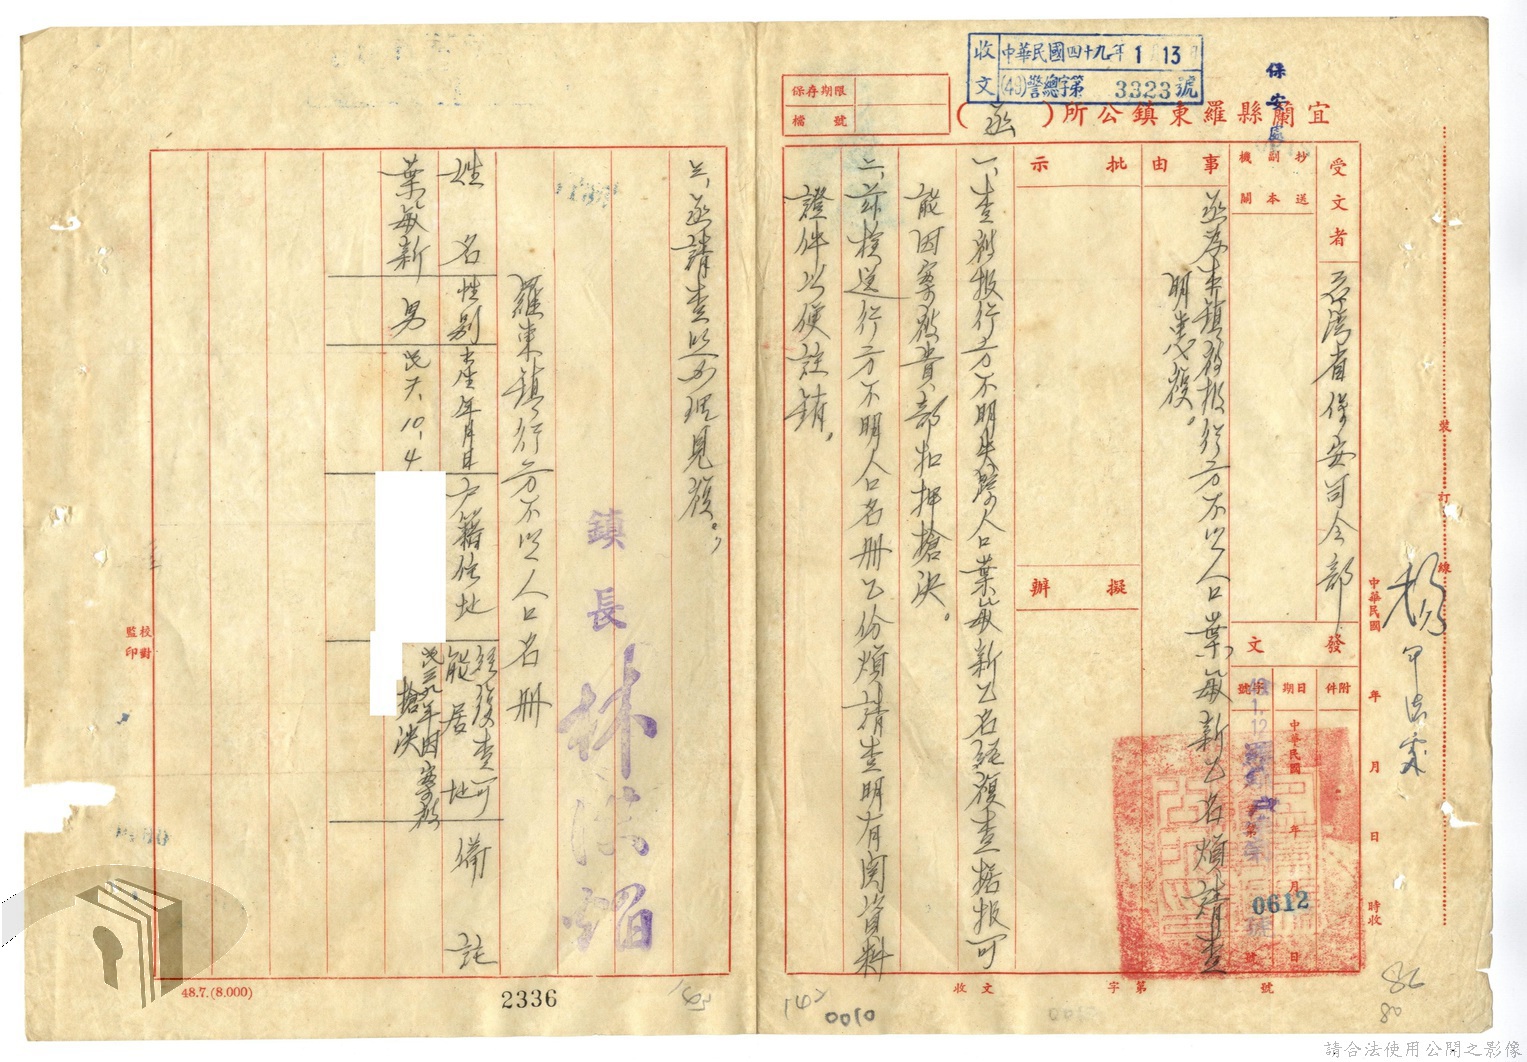 收文 中華民國四十九年1月13日
(49)警總字第3323號
保安處
宜蘭縣羅東鎮公所(函)
保存期限
檔號
受文者
台灣省保安司令部
抄送
副本
機關
發文
附件
日期
字號
中華民國 年 月 日
0612
號
事由
函為本鎮發報行方不明人口葉敏新乙名煩請查
明惠復。
批示
擬辦
一、查前報行方不明失踪人口葉敏新乙名經復查据報可
能因案被貴部扣押搶決。
二、茲檢送行方不明人口名册乙份煩請查明有関資料
證件以便註銷。
三、函請查照办理見復。
鎮長 林
羅東鎮行方不明人口名册
姓名
性別
出生年月日
戶籍住址
經復查可能居地
備註
葉敏新
男
民
10.4.
民三九年因案於
搶決
裝
訂
線
中華民國 年 月 日 時收
收文 字第 號
校對
監印
48.7.(8,000)
2336
0010
請合法使用公開之影像